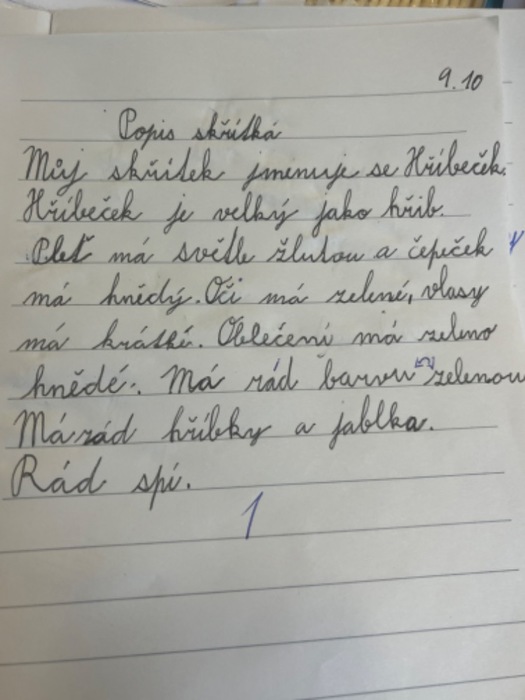 9.10
Popis skřítká
Můj skřítek jmenuje se Hříbeček.
Hříbeček je velký jako hřib.
Pleť má světle žlutou a čepeček
má hnědý. Oči má zelené, vlasy
má krátké. Oblečení má zeleno
hnědé. Má rád barvu zelenou
Má rád hříbky a jablka.
Rád spí.
1